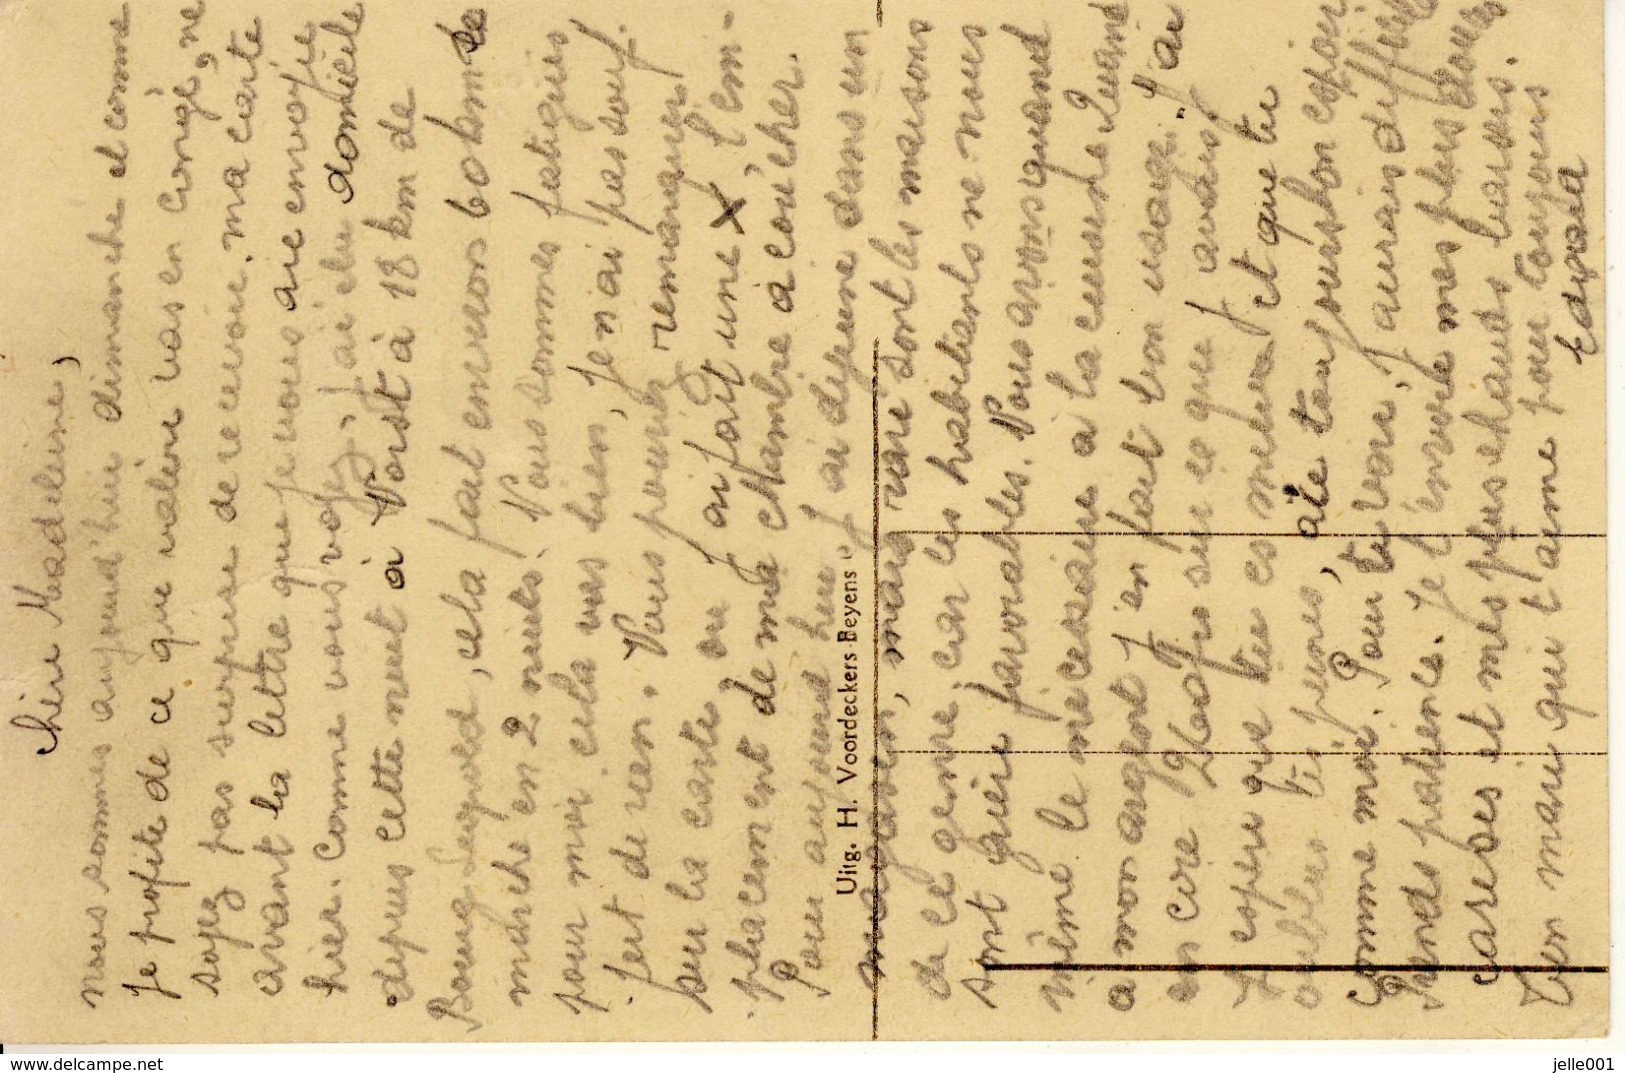 Chère Madeleine,
Nous sommes aujourd'hui dimanche et comme
Je profite de ce que Valère vas en congé, ne
soyez pas surprise de recevoir ma carte
avant la lettre que je vous aie envoyée
hier. Comme vous voyez, j'ai élu domicile
depuis cette nuit à Vorst à 18 km de
Bourg-Léopold, cela fait environ 60 km de
marche en 2 nuits. Nous sommes fatigués
pour moi cela vas bien, Je n'ai pas souf.
fert de rien. Vous pouvez remarquer
sur la carte ou j'ai fait une X, l'em-
placement de ma chambre à coucher.
Pour aujourd'hui j'ai déjeuné dans un
magasin, mais rare sont les maisons
de ce genre, car les habitants ne nous
sont guère favorables. Nous avons quand
même le nécessaire à la cuisine Quand
à mon argent j'en fait bon usage. J'ai
encore 2 frs sur ce que j'avais
J'espère que tu es mieux et que tu
oublies tes peines, aie ton bon espoir
Comme moi. Pour te voir, j'aurais difficile
Prends patience. Je t'envoie mes plus douces
caresses et mes plus chauds baisers.
Ton mari qui t'aime pour toujours
Edgard
Uitg. H. Voordeckers-Beyens
jelle001